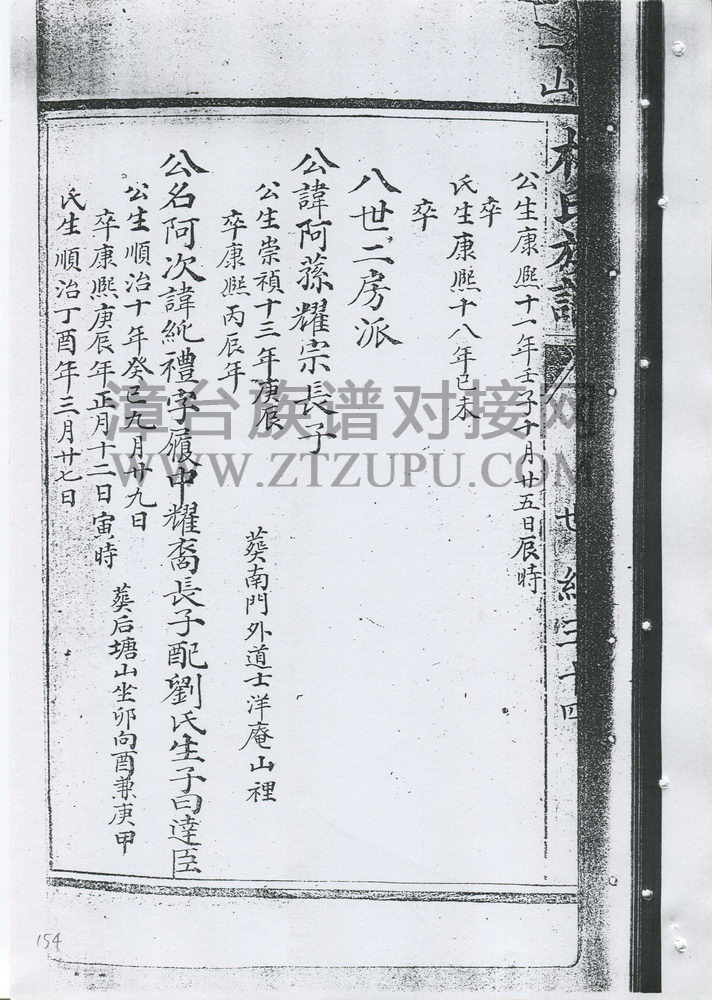 林氏族譜
紀三十四
公生康熙十一年壬子十月廿五日辰時
卒
氏生康熙十八年己未
卒
八世二房派
公諱阿蓀耀宗長子
公生崇禎十三年庚辰
卒康熙丙辰年
葵南門外道士洋庵山裡
公名阿次諱紽禮字履中耀裔長子配劉氏生子曰達臣
公生順治十年癸己九月廿九日
卒康熙庚辰年正月十二日寅時
葵后塘山坐卯向酉兼庚甲
氏生順治丁酉年三月廿七日
漳台族谱对接网
WWW.ZTZUPU.COM
154